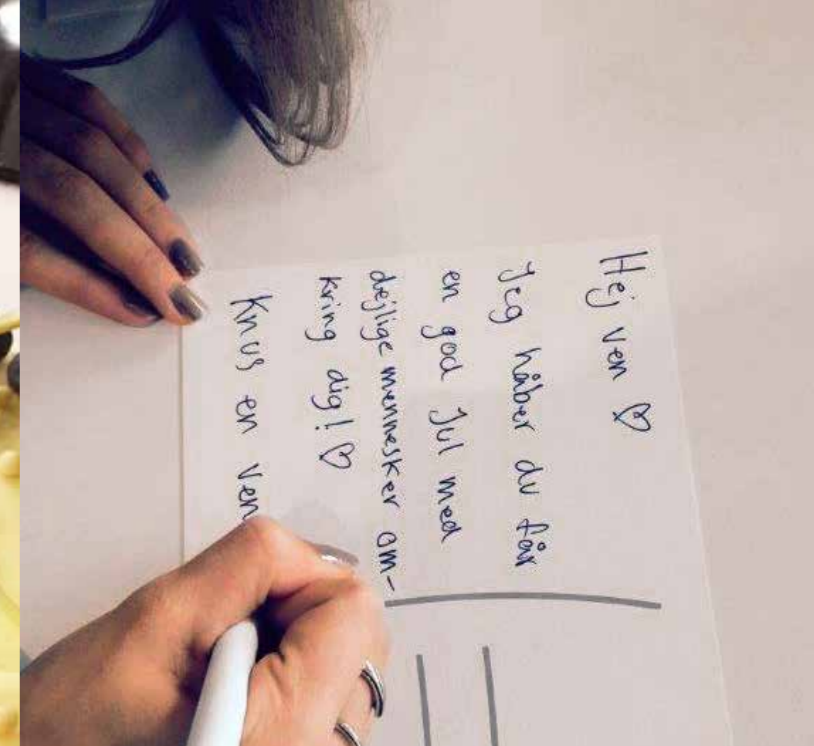 Hej ven ♡
Jeg håber du får
en god Jul med
dejlige mennesker om-
kring dig! ♡
Knus en ven